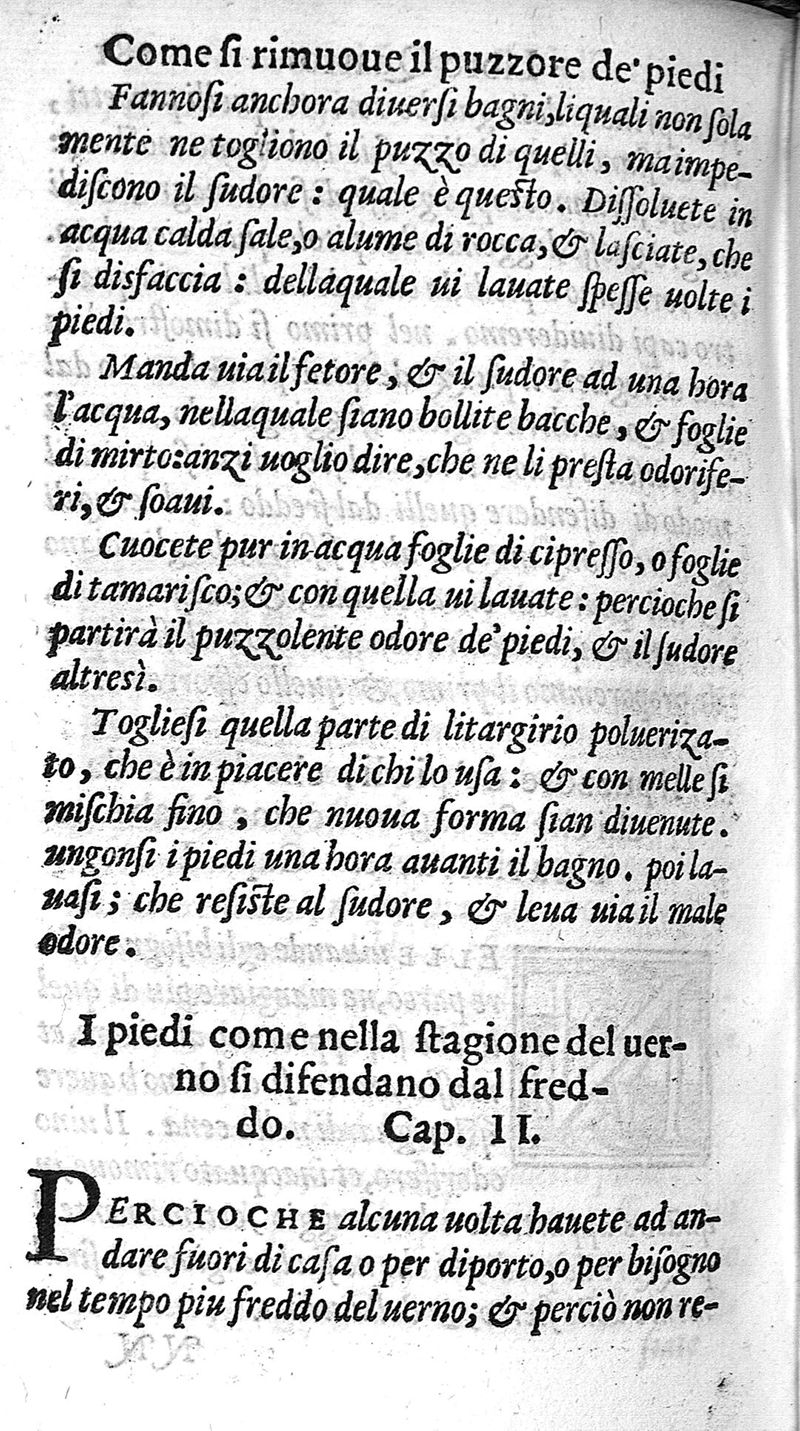 Come ſi rimuoue il puzzore de' piedi
Fannoſi anchora diuerſi bagni, liquali non ſola
mente ne togliono il puzzo di quelli, ma impe-
diſcono il ſudore : quale è queſto. Diſſoluete in
acqua calda ſale, o alume di rocca, & laſciate, che
ſi disfaccia : dellaquale ui lauate ſpeſſe uolte i
piedi.
Manda uia il fetore, & il ſudore ad una hora
l'acqua, nellaquale ſiano bollite bacche, & foglie
di mirto: anzi uoglio dire, che ne li preſta odorife-
ri, & ſoaui.
Cuocete pur in acqua foglie di cipreſſo, o foglie
di tamariſco; & con quella ui lauate : percioche ſi
partirà il puzzolente odore de' piedi, & il ſudore
altresì.
Toglieſi quella parte di litargirio polueriza-
to, che è in piacere di chi lo uſa : & con melle ſi
miſchia fino, che nuoua forma ſian diuenute.
ungonſi i piedi una hora auanti il bagno. poi la-
uaſi ; che reſiſte al ſudore, & leua uia il male
odore.
I piedi come nella ſtagione del uer-
no ſi difendano dal fred-
do. Cap. II.
PERCIOCHE alcuna uolta hauete ad an-
dare fuori di caſa o per diporto, o per biſogno
nel tempo piu freddo del uerno; & perciò non re-